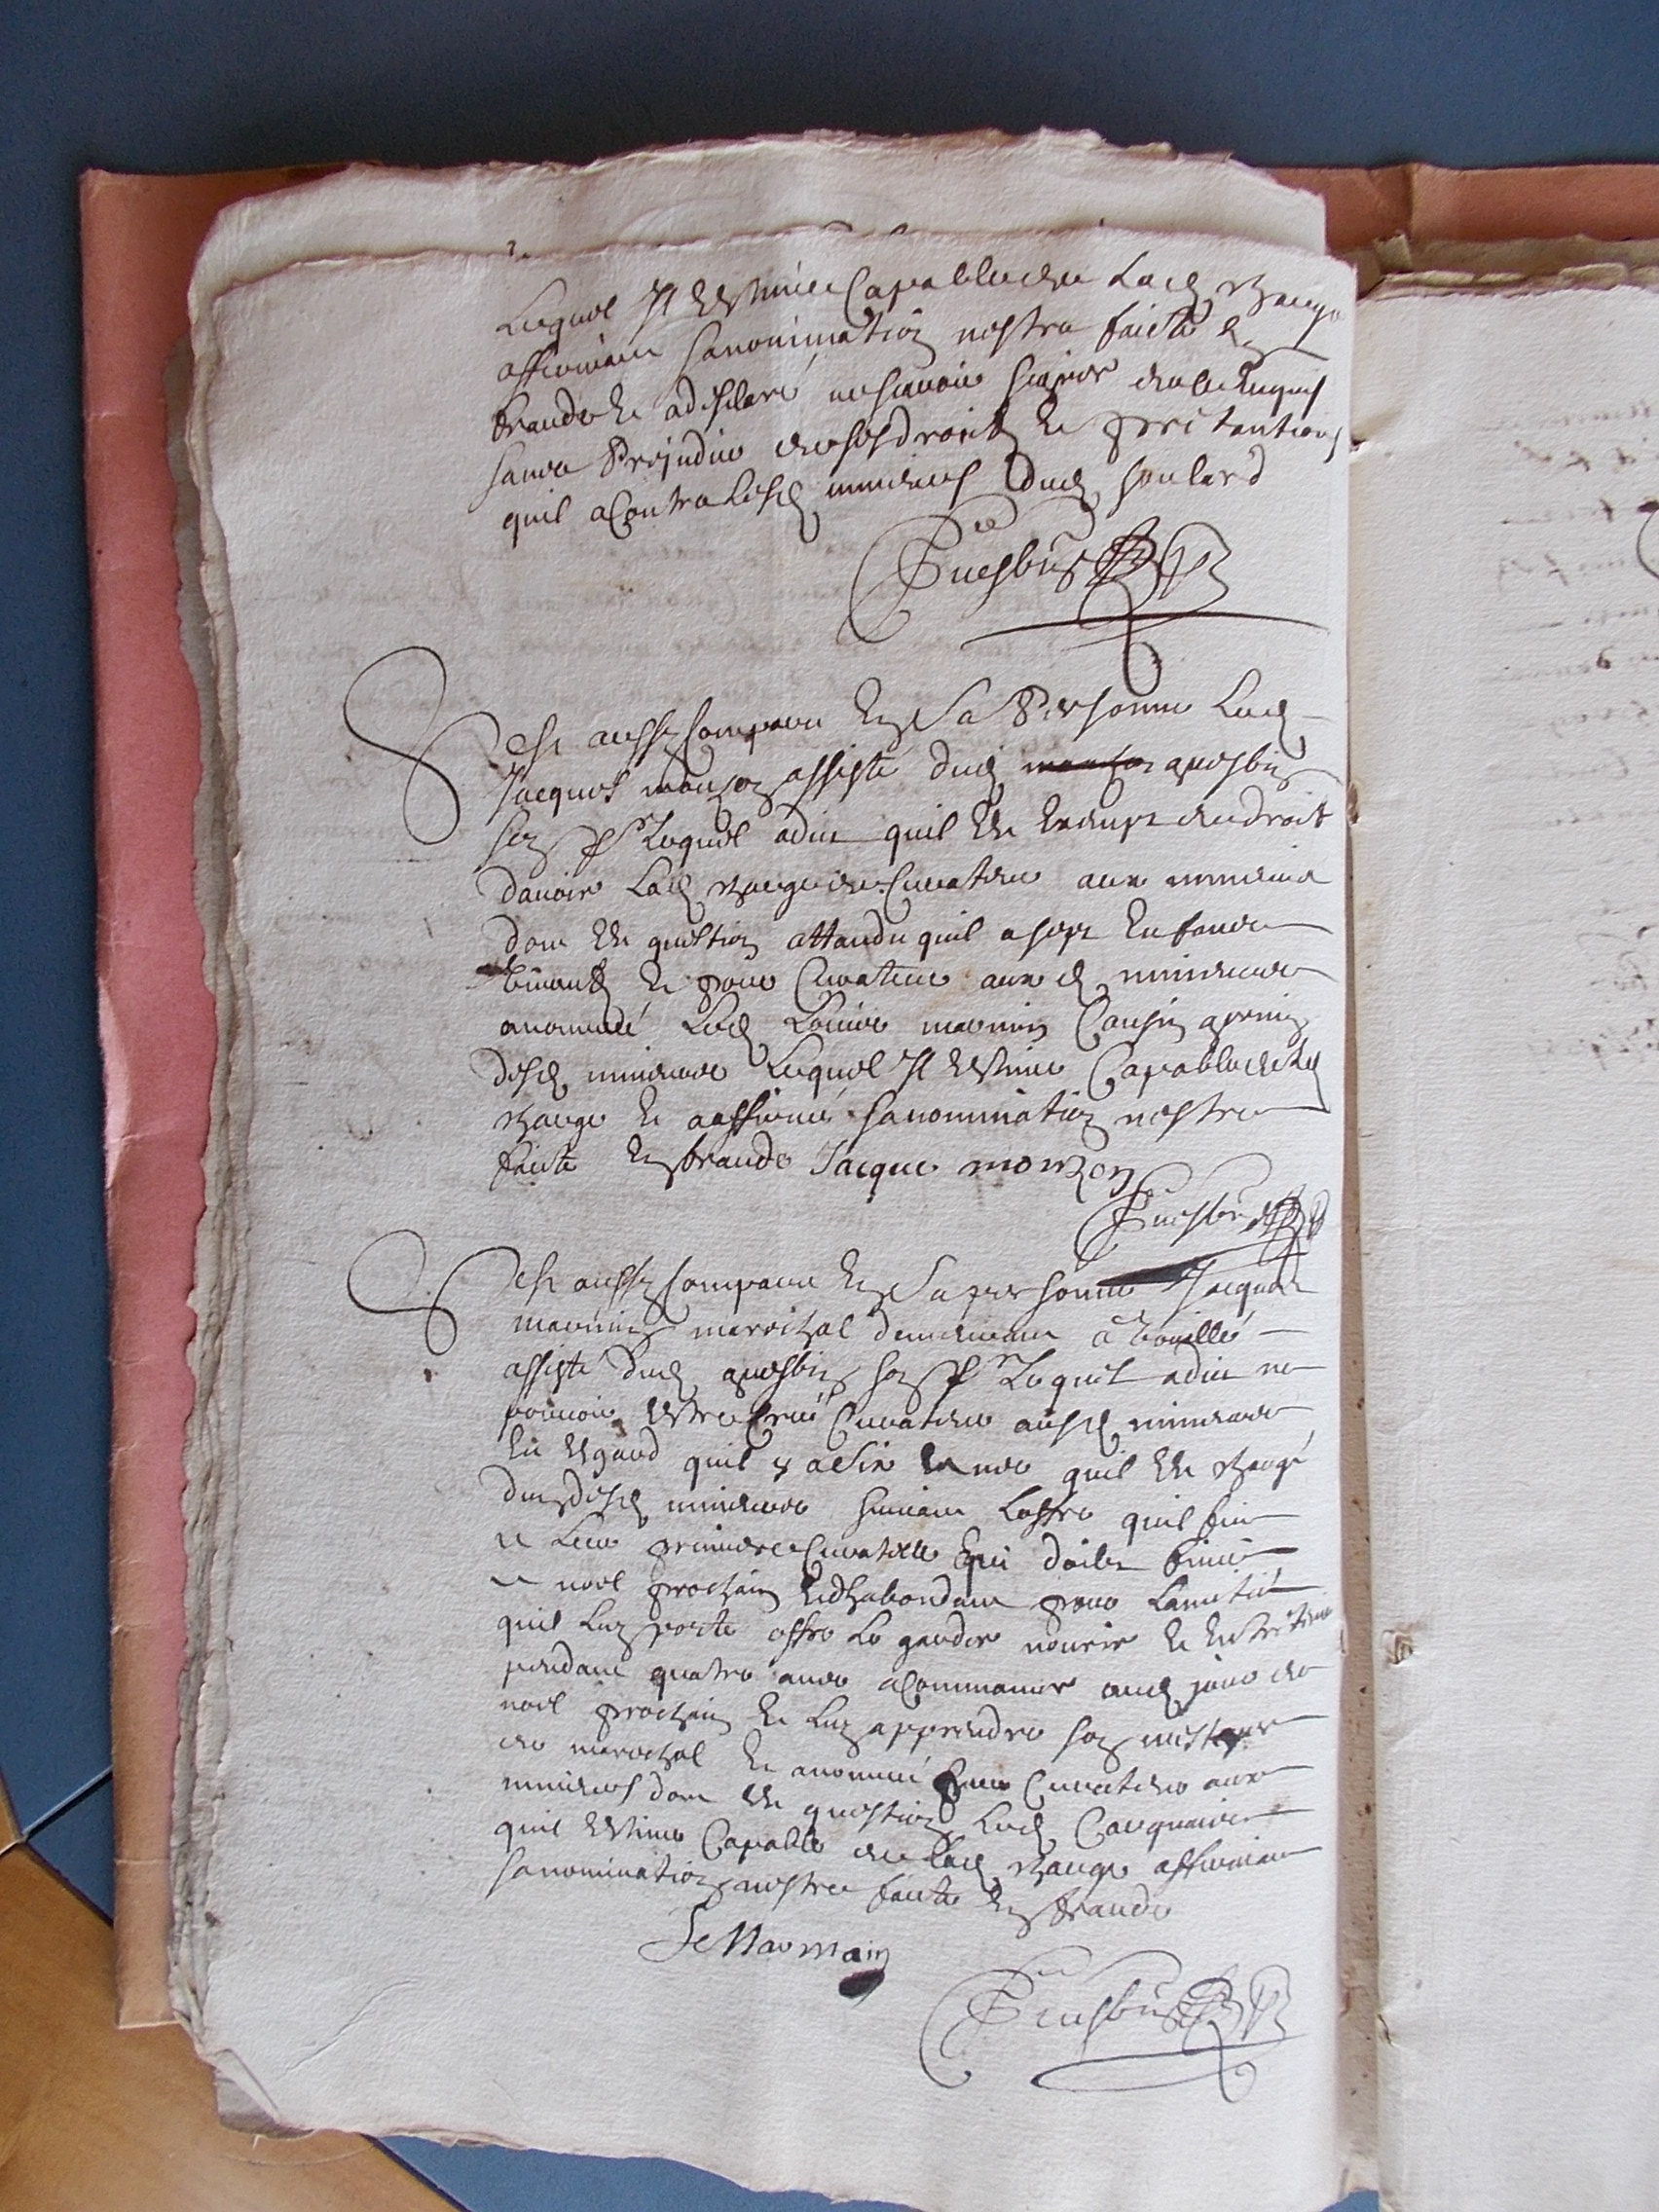 Lequel Il Estime Capable de Lad charge
affirmant sa nomination nestre faicte En
fraude Et a desclaré ne scavoir signer de ce Enquis
sans Prejudice de ses droicts Et pretantions
quil a Contre Lesd mineurs dud soulard
Guesbin
Est aussy Comparu En Sa Personne Led
Jacques mouzon assisté dud guesbin
son pr Lequel a dict quil Est Exempt de droict
davoir Lad charge de Curateur aux mineurs
dont Est question attandu quil a sept Enfans
vivants Et pour Curateur aux d mineurs
a nommé Led Louis marmin Cousin germin
desd mineurs Lequel Il Estime Capable de lad
charge Et a affirmé sa nomination nestre
faicte En fraude Jacque mouzon
Guesbin
Est aussy Comparu En Sa personne Jacques
marmin mareschal demeurant à vouillé
assisté dud guesbin son pr Lequel a dict ne
pouvoir Estre Créé Curateur ausd mineurs
Eu Esgard quil y a six ans quil Est chargé
dun desd mineurs suivant Loffre quil fit
a Leur premiere Curatelle qui doibt finir
a noel prochain Et dhabondant pour Lamitié
quil Luy porte offre Le garder nourir Et Entretenir
pendant quatre ans a Commancer aud jour de
noel prochain Et Luy apprendre son mestier
de mareschal Et a nommé pour Curateur aux
mineurs dont Est question Led
quil Estime Capable de Lad charge affirmant
sa nomination nestre faicte En fraude
Guesbin